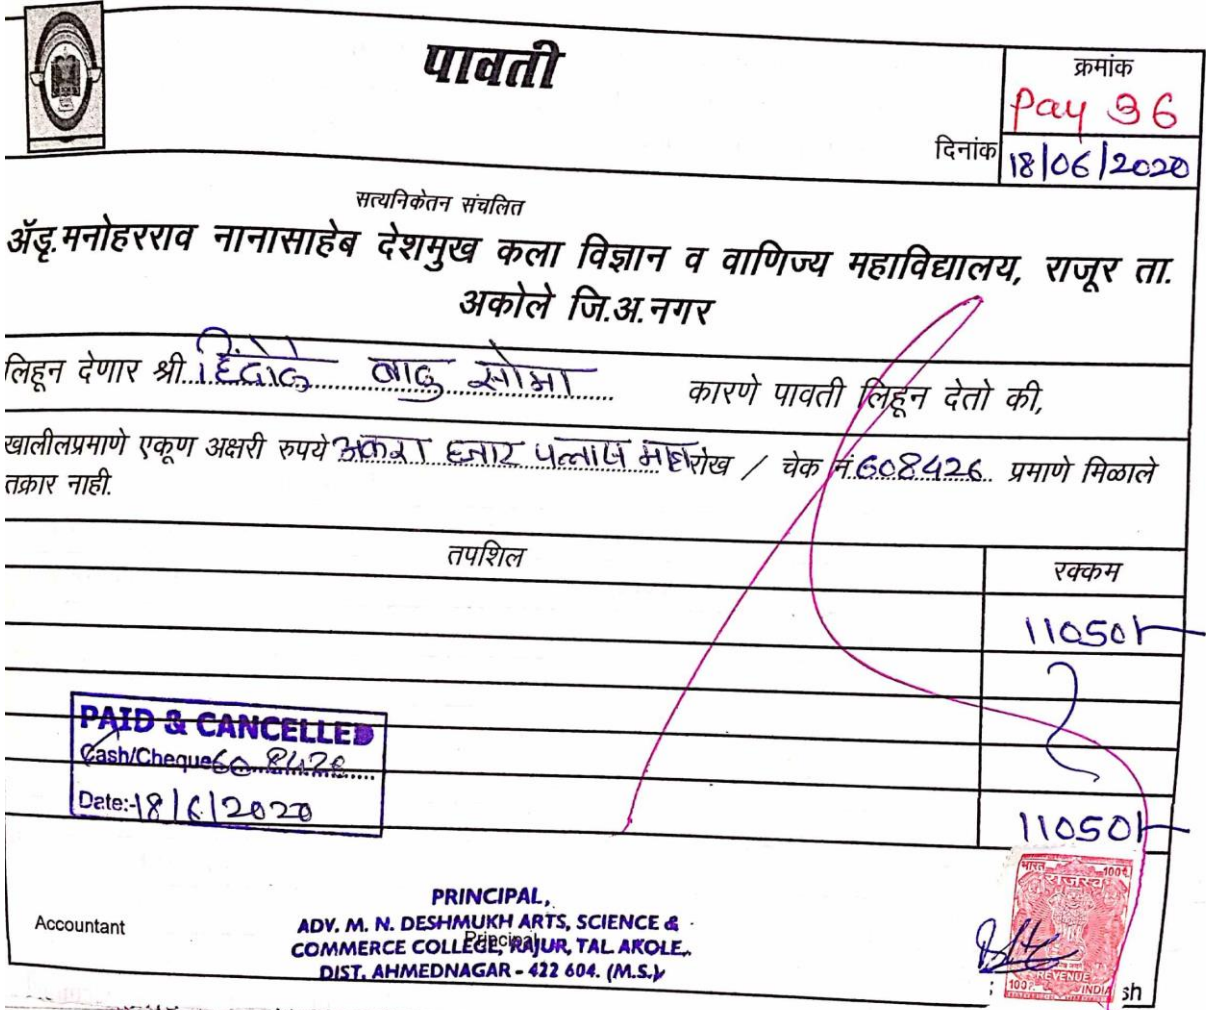 पावती
क्रमांक
Pay 36
दिनांक 18/06/2020
सत्यनिकेतन संचलित
ॲड्.मनोहरराव नानासाहेब देशमुख कला विज्ञान व वाणिज्य महाविद्यालय, राजूर ता.
अकोले जि.अ.नगर
लिहून देणार श्री. बाळु सोमा कारणे पावती लिहून देतो की,
खालीलप्रमाणे एकूण अक्षरी रुपये अकरा हजार पन्नास रोख / चेक नं.608426 प्रमाणे मिळाले
तक्रार नाही.
तपशिल रक्कम
11050/-
PAID & CANCELLED
Cash/Cheque
Date:-18/6/2020
11050/-
PRINCIPAL,
Accountant ADV. M. N. DESHMUKH ARTS, SCIENCE &
COMMERCE COLLEGE, RAJUR, TAL AKOLE,
Principal
DIST. AHMEDNAGAR - 422 604. (M.S.)
भारत 100
राजस्व
REVENUE
100 INDIA